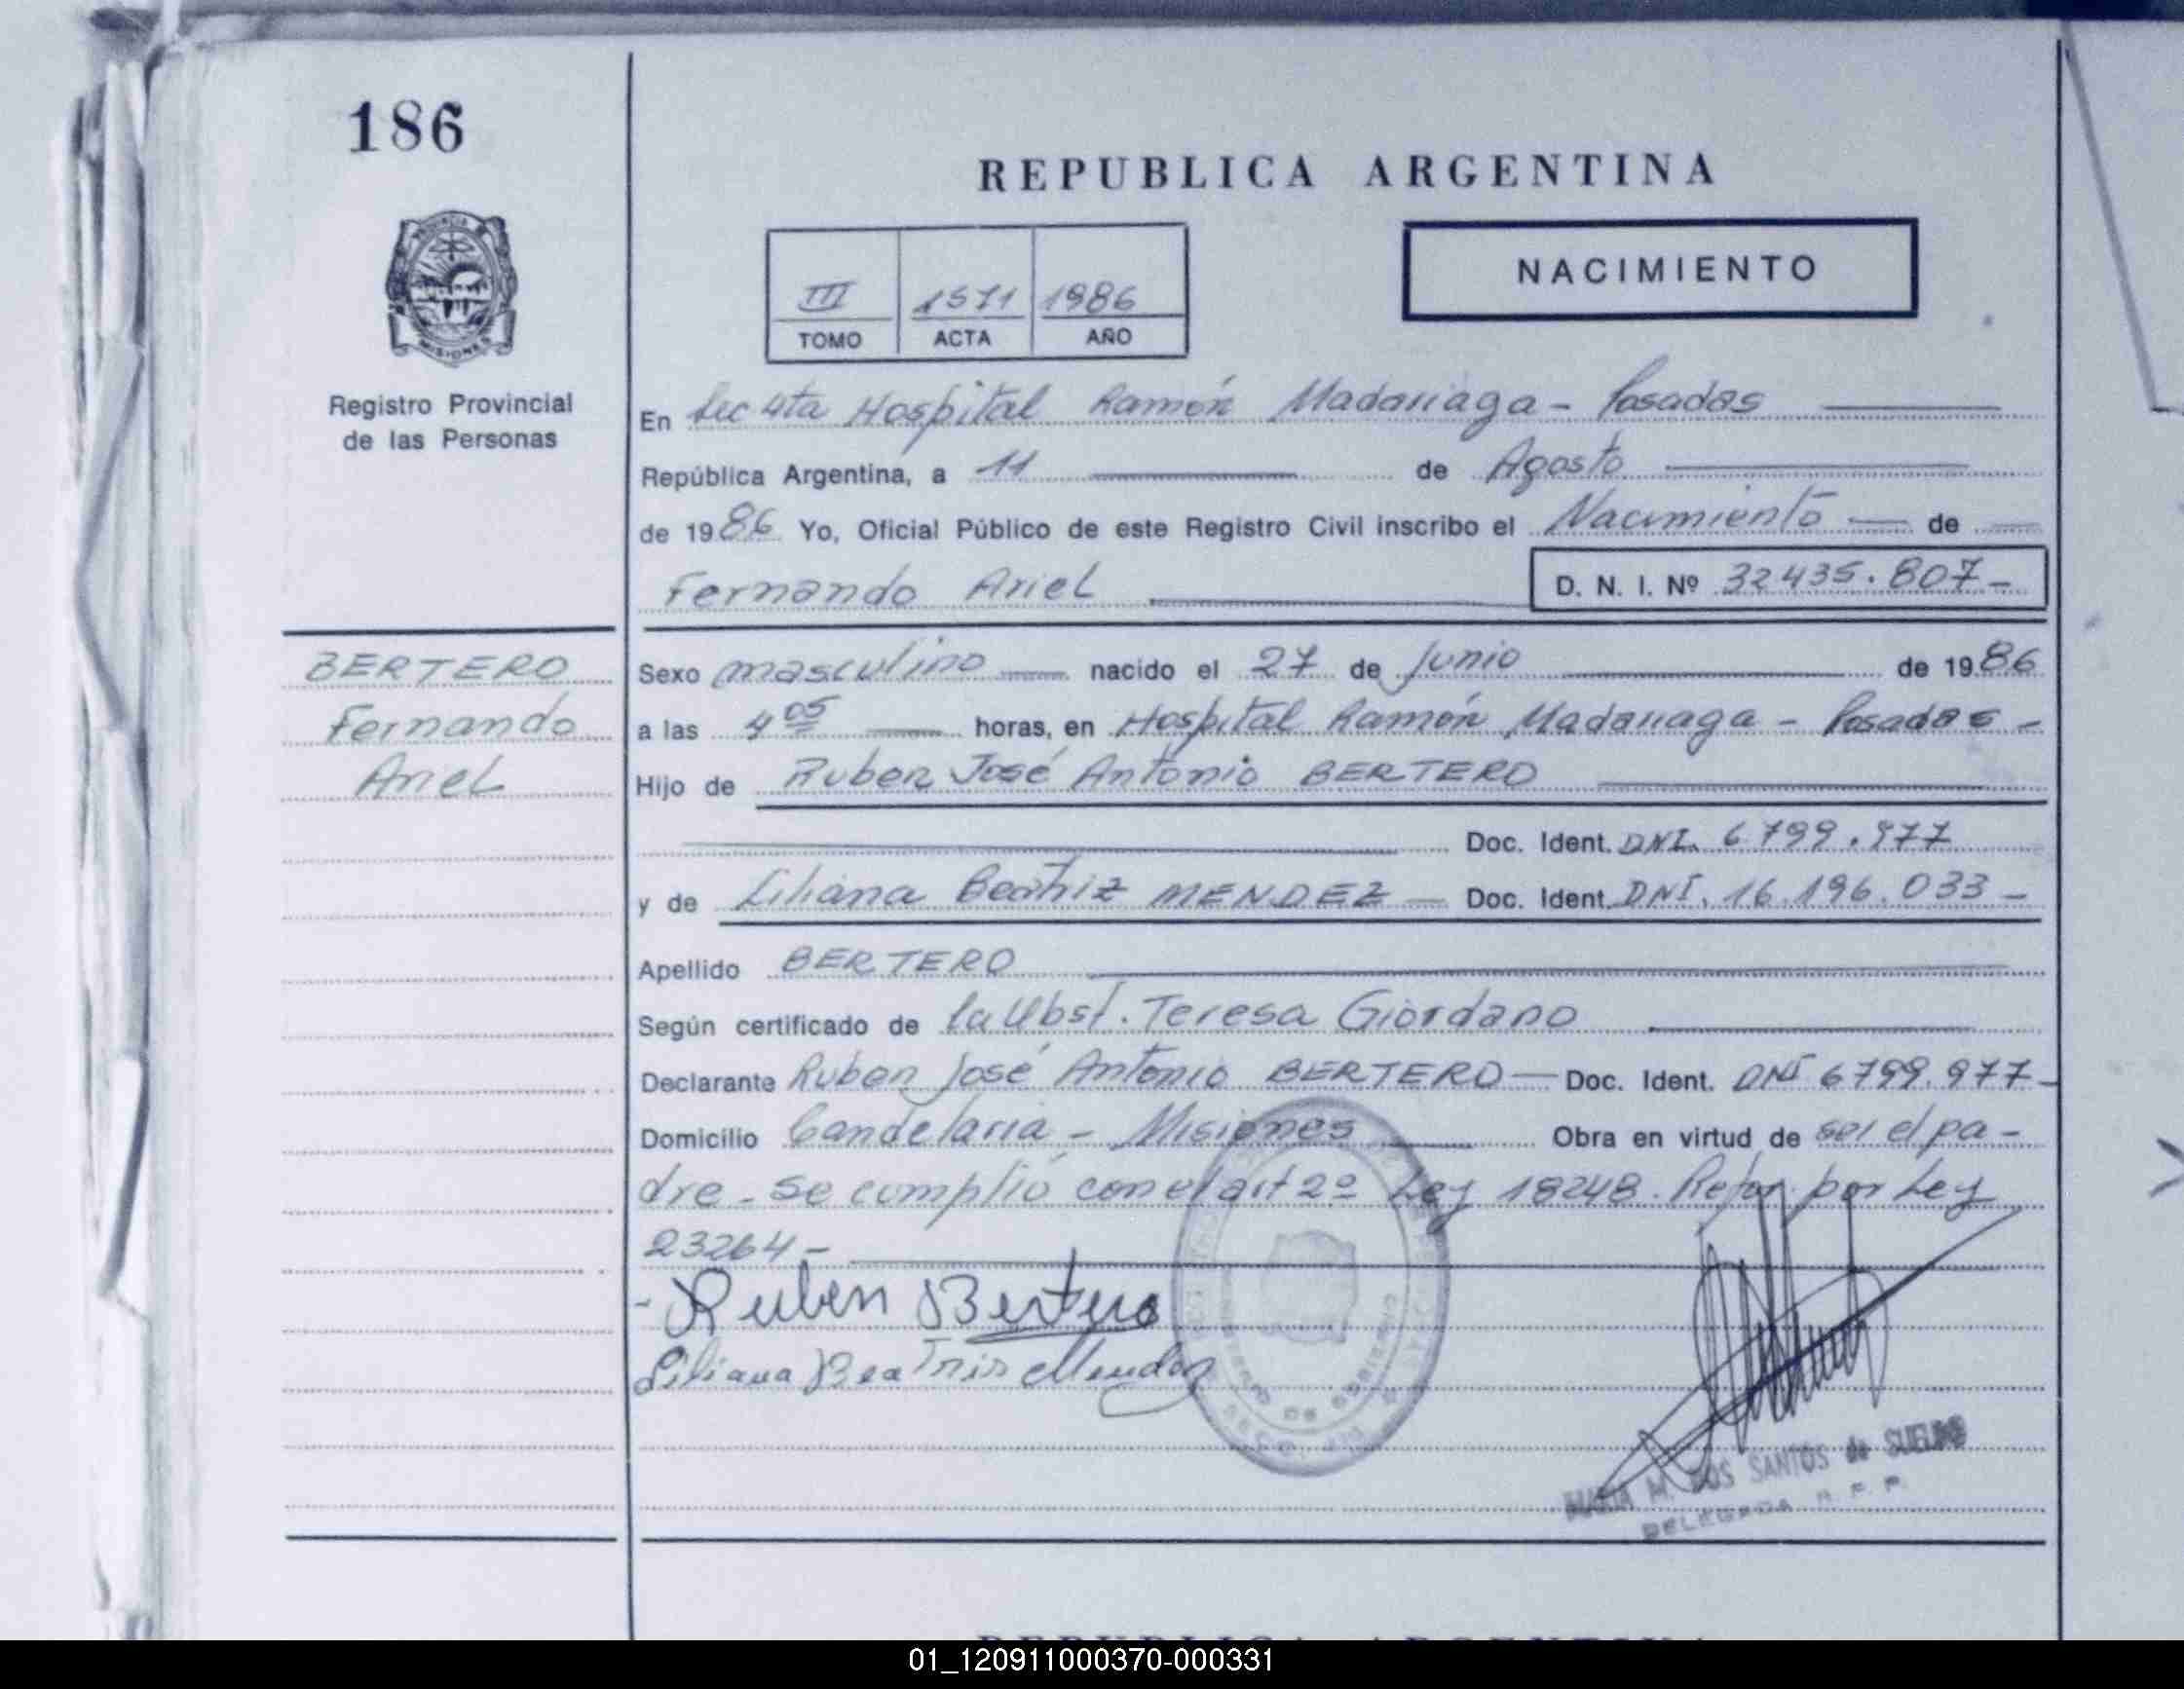 186
REPUBLICA ARGENTINA
PROVINCIA DE
MISIONES
Registro Provincial
de las Personas
III 1571 1986
TOMO ACTA AÑO
NACIMIENTO
En Sec 4ta Hospital Ramón Madariaga - Posadas
República Argentina, a 11 de Agosto
de 1986 Yo, Oficial Público de este Registro Civil inscribo el Nacimiento de
Fernando Ariel D. N. I. Nº 32435.807-
BERTERO
Fernando
Ariel
Sexo masculino nacido el 27 de Junio de 1986
a las 4 05 horas, en Hospital Ramón Madariaga - Posadas -
Hijo de Ruben José Antonio BERTERO
Doc. Ident. DNI. 6799.977
y de Liliana Beatriz MENDEZ Doc. Ident. DNI. 16.196.033 -
Apellido BERTERO
Según certificado de la Obst. Teresa Giordano
Declarante Ruben José Antonio BERTERO — Doc. Ident. DNI 6799.977-
Domicilio Candelaria - Misiones Obra en virtud de ser el pa-
dre - Se cumplió con el art 2º Ley 18248. Refor. por Ley
23264 -
- Ruben Bertero
Liliana Beatris Mendez
MINISTERIO DE GOBIERNO
MARIA M. DOS SANTOS de SUELDO
DELEGADA R. P. P.
REPUBLICA ARGENTINA
01_120911000370-000331